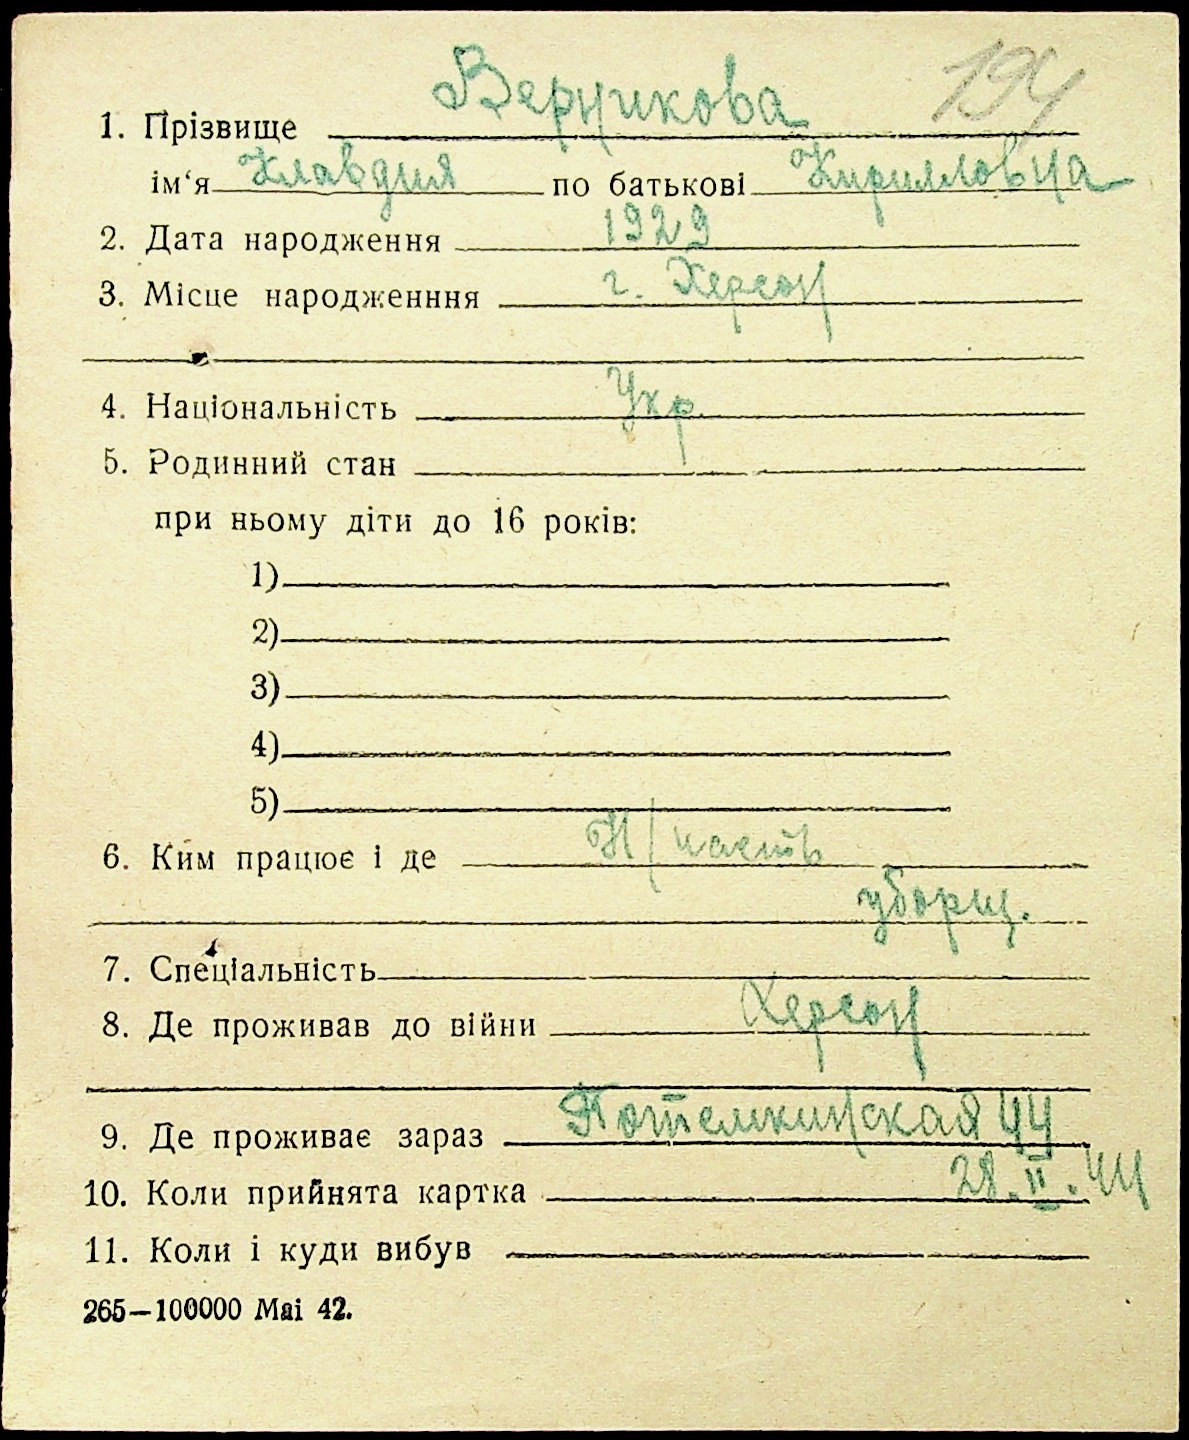 194
1. Прізвище Верникова
ім‘я Клавдия по батькові Кирилловна
2. Дата народження 1929
3. Місце народженння г. Херсон
4. Національність Укр
5. Родинний стан
при ньому діти до 16 років:
1)
2)
3)
4)
5)
6. Ким працює і де Н/часть
уборщ.
7. Спеціальність
8. Де проживав до війни Херсон
9. Де проживає зараз Потемкинская 44
10. Коли прийнята картка 28.II.44
11. Коли і куди вибув
265—100000 Mai 42.